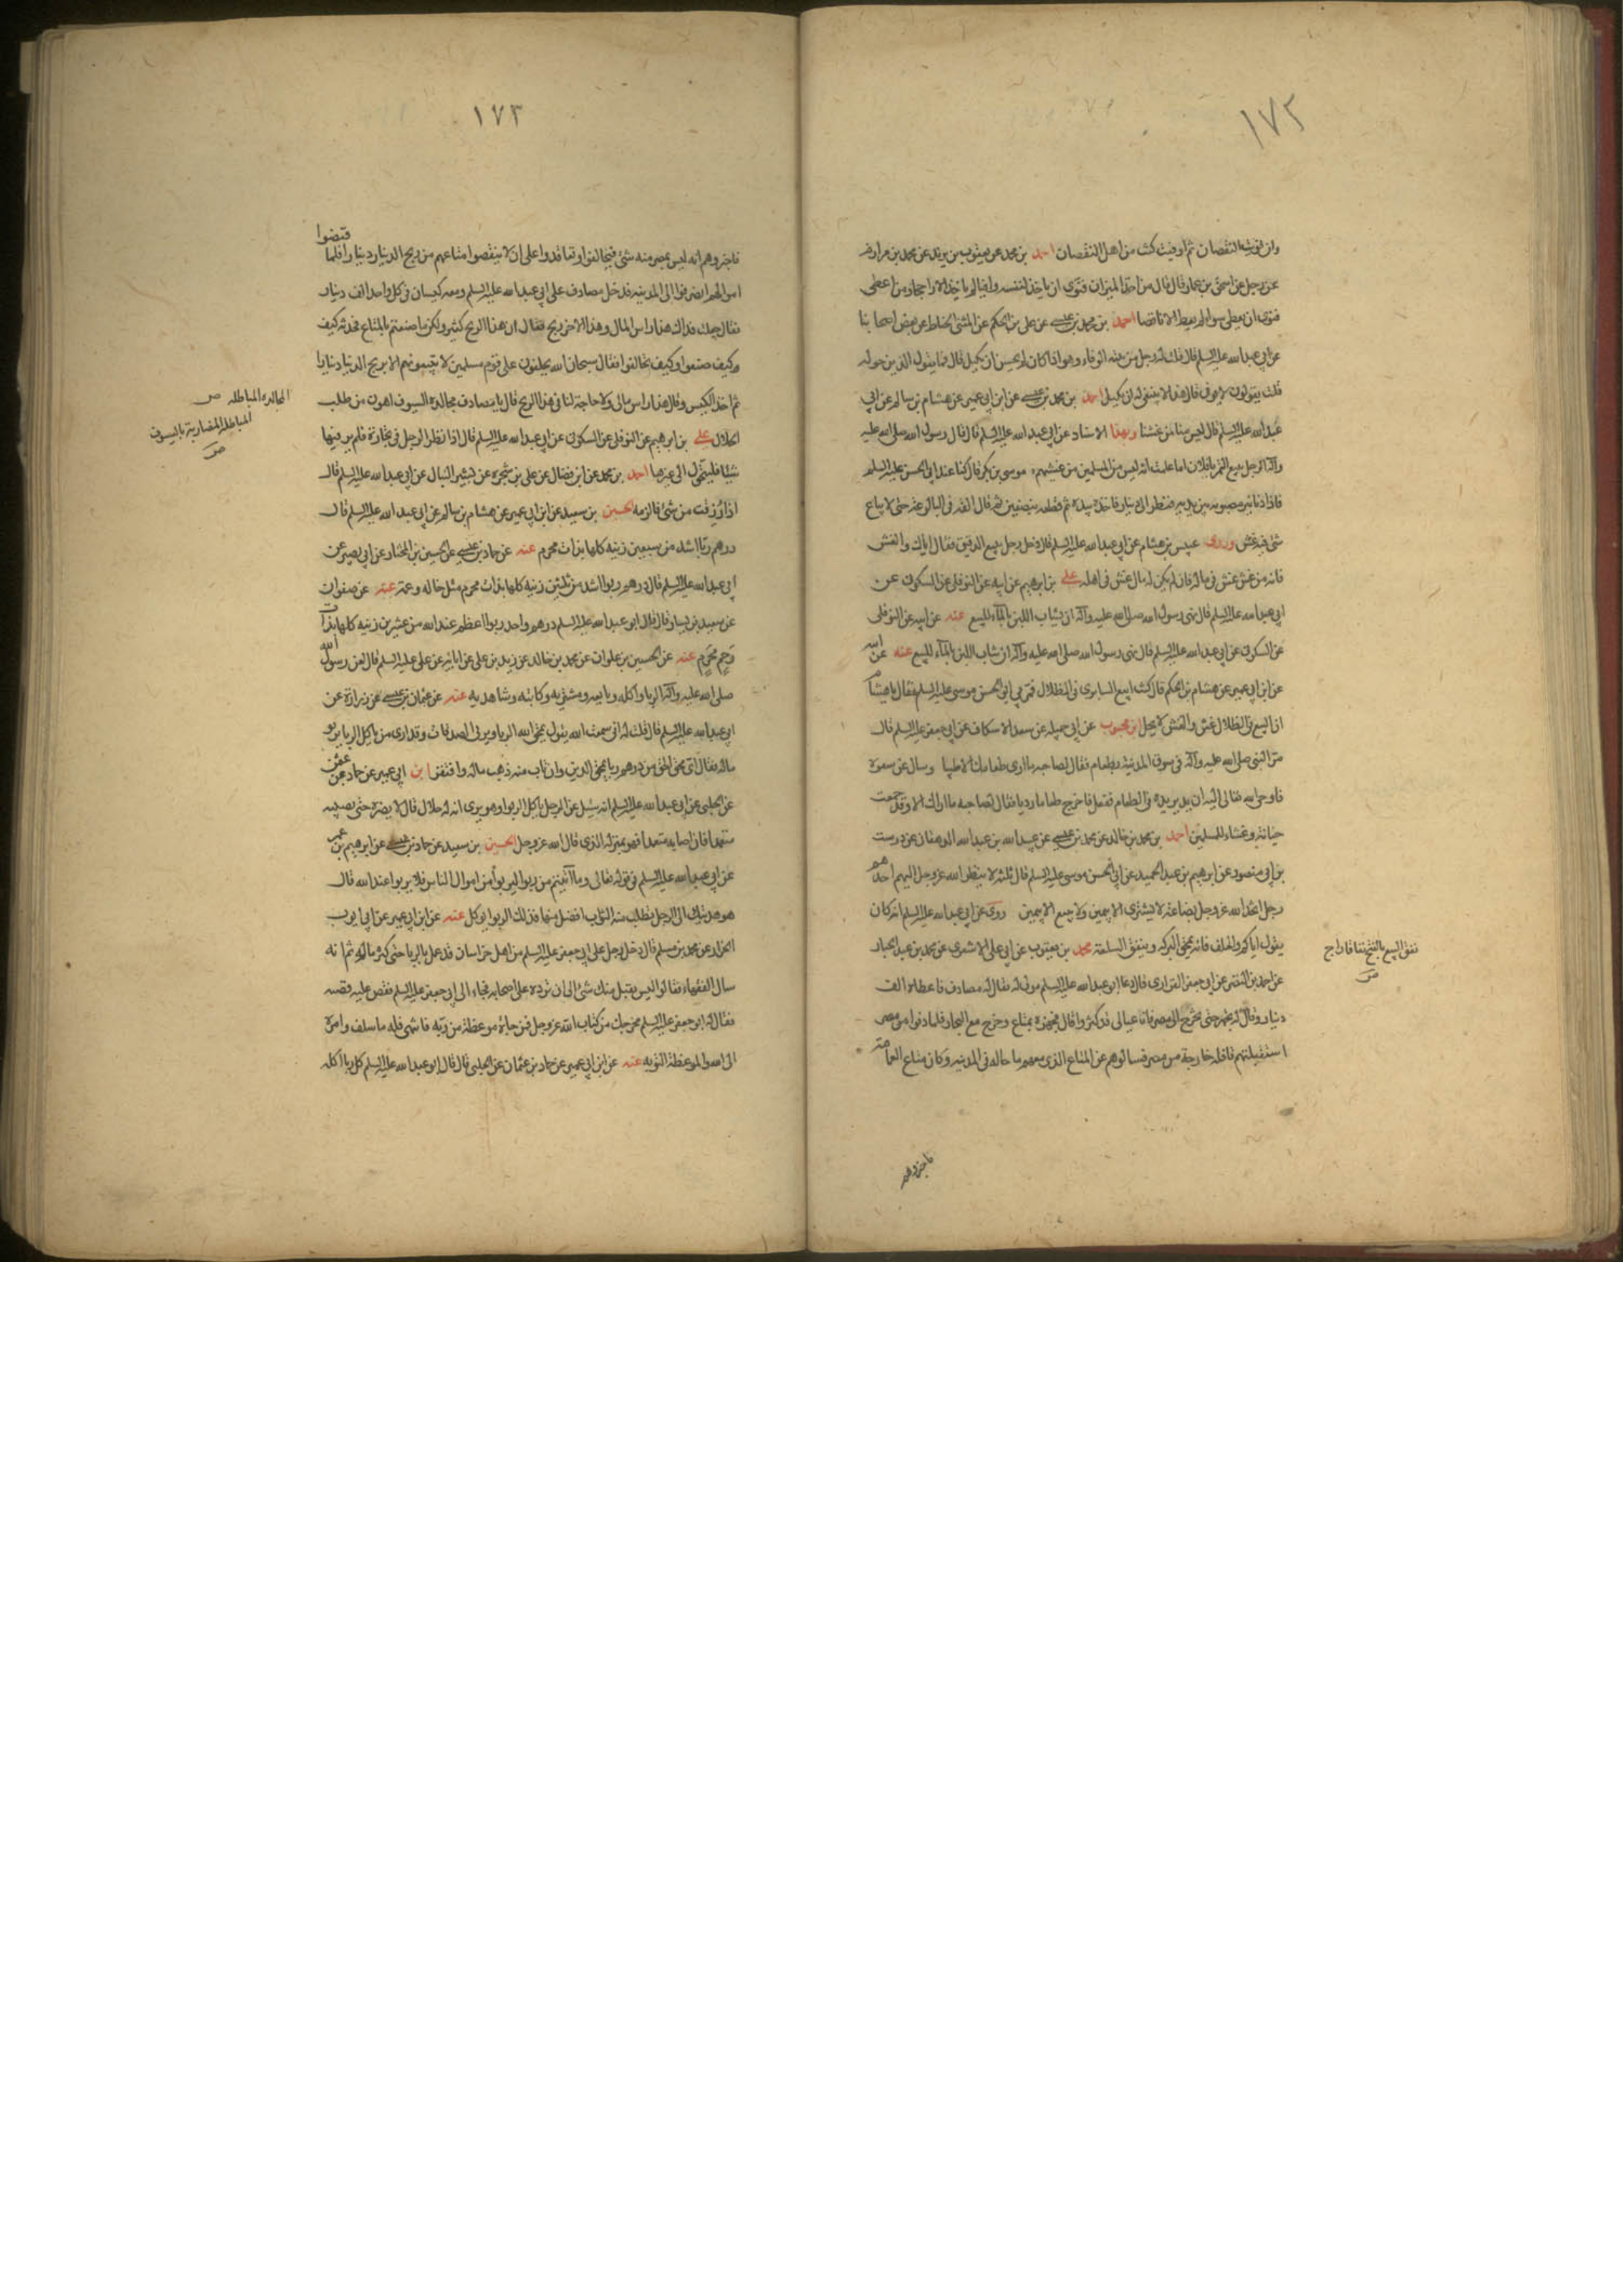 ١٧٢
وان نويت النقصان ثم اوفيت كنت من اهل النقصان احمد بن محمد عن يعقوب بن يزيد عن محمد بن مرازم
عن رجل عن اسحق بن عمار قال قال من اخذ الميزان فنوى ان ياخذ لنفسه وافيا لم ياخذ الا راجحا ومن اعطى
فنوى ان يعطى سواء لم يعط الا ناقصا احمد بن محمد بن عيسى عن على بن الحكم عن المثنى الحناط عن بعض اصحابنا
عن ابى عبد الله عليه السلم قال قلت له رجل من نيته الوفاء وهو اذا كال لم يحسن ان يكيل قال فما يقول الذين حوله
قلت يقولون لا يوفى قال هذا لا ينبغى له ان يكيل احمد بن محمد بن عيسى عن ابن ابى عمير عن هشام بن سالم عن ابى
عبد الله عليه السلم قال ليس منا من غشنا وبهذا الاسناد عن ابى عبد الله عليه السلم قال قال رسول الله صلى الله عليه
وآله لرجل يبيع التمر يا فلان اما علمت انه ليس من المسلمين من غشهم موسى بن بكر قال كنا عند ابى الحسن عليه السلم
فاذا دنانير مصبوبة بين يديه فنظر الى دينار فاخذه بيده ثم قطعه بنصفين ثم قال القه فى البالوعة حتى لا يباع
شئ فيه غش وروى عبيس بن هشام عن ابى عبد الله عليه السلم قال دخل رجل يبيع الدقيق فقال اياك والغش
فانه من غش غش فى ماله فان لم يكن له مال غش فى اهله على بن ابرهيم عن ابيه عن النوفلى عن السكونى عن
ابى عبد الله عليه السلم قال نهى رسول الله صلى الله عليه وآله ان يشاب اللبن بالماء للبيع عنه عن ابيه عن النوفلى
عن السكونى عن ابى عبد الله عليه السلم قال نهى رسول الله صلى الله عليه وآله ان يشاب اللبن بالماء للبيع عنه عن ابيه
عن ابن ابى عمير عن هشام بن الحكم قال كنت ابيع السابرى فى الظلال فمر بى ابو الحسن موسى عليه السلم فقال يا هشام
ان البيع فى الظلال غش والغش لا يحل ابن محبوب عن ابى جميله عن سعد الاسكاف عن ابى جعفر عليه السلم قال
مر النبى صلى الله عليه وآله فى سوق المدينة بطعام فقال لصاحبه ما ارى طعامك الا طيبا وسال عن سعره
فاوحى الله تعالى اليه ان يدير يده فى الطعام ففعل فاخرج طعاما رديا فقال لصاحبه ما اراك الا وقد جمعت
خيانة وغشا للمسلمين احمد بن محمد بن خالد عن محمد بن عيسى عن عبيد الله بن عبد الله الدهقان عن درست
بن ابى منصور عن ابرهيم بن عبد الحميد عن ابى الحسن موسى عليه السلم قال ثلثة لا ينظر الله عز وجل اليهم احدهم
رجل اتخذ الله عز وجل بضاعة لا يشترى الا بيمين ولا يبيع الا بيمين روى عن ابى عبد الله عليه السلم انه كان
يقول اياكم والحلف فانه يمحق البركه وينفق السلعة محمد بن يعقوب عن ابى على الاشعرى عن محمد بن عبد الجبار
عن احمد بن النضر عن ابى جعفر الفزارى قال دعا ابو عبد الله عليه السلم مولى له يقال له مصادف فاعطاه الف
دينار وقال له تجهز حتى تخرج الى مصر فان عيالى قد كثروا قال فتجهزه بمتاع وخرج مع التجار فلما دنوا من مصر
استقبلتهم قافله خارجة من مصر فسالوهم عن المتاع الذى معهم ما حاله فى المدينه وكان متاع العامة
نفق البيع بالفتح نفاقا راج
ص
فاخبروهم
١٧٣
فاخبروهم انه ليس بمصر منه شئ فتحالفوا وتعاقدوا على ان لا ينقصوا متاعهم من ربح الدينار دينارا فلما قبضوا
اموالهم انصرفوا الى المدينه فدخل مصادف على ابى عبد الله عليه السلم ومعه كيسان فى كل واحد الف دينار
فقال جعلت فداك هذا راس المال وهذا الاخر ربح فقال ان هذا الربح كثير ولكن ما صنعتم بالمتاع فحدثه كيف
وكيف صنعوا وكيف تحالفوا فقال سبحان الله تحلفون على قوم مسلمين لا تبيعونهم الا بربح الدينار دينارا
ثم اخذ الكيس وقال هذا راس مالى ولا حاجة لنا فى هذا الربح قال يا مصادف مجالدة السيوف اهون من طلب
الحلال على بن ابرهيم عن النوفلى عن السكونى عن ابى عبد الله عليه السلم قال اذا نظر الرجل فى تجارة فلم ير فيها
شيئا فليتحول الى غيرها احمد بن محمد عن ابن فضال عن على بن شجره عن بشير النبال عن ابى عبد الله عليه السلم قال
اذا رزقت من شئ فالزمه الحسين بن سعيد عن ابن ابى عمير عن هشام بن سالم عن ابى عبد الله عليه السلم قال
درهم ربا اشد من سبعين زنية كلها بذات محرم عنه عن حماد بن عيسى عن الحسين بن المختار عن ابى بصير عن
ابى عبد الله عليه السلم قال درهم ربوا اشد من ثلثين زنية كلها بذات محرم مثل خاله وعمه عنه عن صفوان
عن سعيد بن يسار قال قال ابو عبد الله عليه السلم درهم واحد ربوا اعظم عند الله من عشرين زنية كلها بذات
رحم محرم عنه عن الحسين بن علوان عن عمرو بن خالد عن زيد بن على عن ابائه عن على عليه السلم قال لعن رسول الله
صلى الله عليه وآله الربا واكله وبايعه ومشتريه وكاتبه وشاهديه عنه عن عثمان بن عيسى عن زرارة عن
ابى عبد الله عليه السلم قال قلت له انى سمعت الله يقول يمحق الله الربا ويربى الصدقات وقد ارى من ياكل الربا يربو
ماله فقال اى محق امحق من درهم ربا يمحق الدين وان تاب منه ذهب ماله وافتقر ابن ابى عمير عن حماد بن عثمن
عن الحلبى عن ابى عبد الله عليه السلم انه سئل عن الرجل ياكل الربوا وهو يرى انه له حلال قال لا يضره حتى يصيبه
متعمدا فان اصابه متعمدا فهو بمنزلة الذى قال الله عز وجل الحسين بن سعيد عن حماد بن عيسى عن ابرهيم بن عمر
عن ابى عبد الله عليه السلم فى قوله تعالى وما آتيتم من ربوا ليربوا من اموال الناس فلا يربوا عند الله قال
هو هديتك الى الرجل تطلب منه الثواب افضل منها فذلك الربوا يوكل عنه عن ابن ابى عمير عن ابى ايوب
الخزاز عن محمد بن مسلم قال دخل رجل على ابى جعفر عليه السلم من اهل خراسان قد عمل بالربا حتى كثر ماله ثم انه
سال الفقهاء فقالوا ليس يقبل منك شئ الى ان ترده على اصحابه فجاء الى ابى جعفر عليه السلم فقص عليه قصته
فقال له ابو جعفر عليه السلم مخرجك من كتاب الله عز وجل فمن جاءه موعظة من ربه فانتهى فله ما سلف وامره
الى الله والموعظة التوبه عنه عن ابن ابى عمير عن حماد بن عثمان عن الحلبى قال قال ابو عبد الله عليه السلم كل ربا اكله
المجالدة المباطله ص
المباطله المضاربة بالسيوف
ص